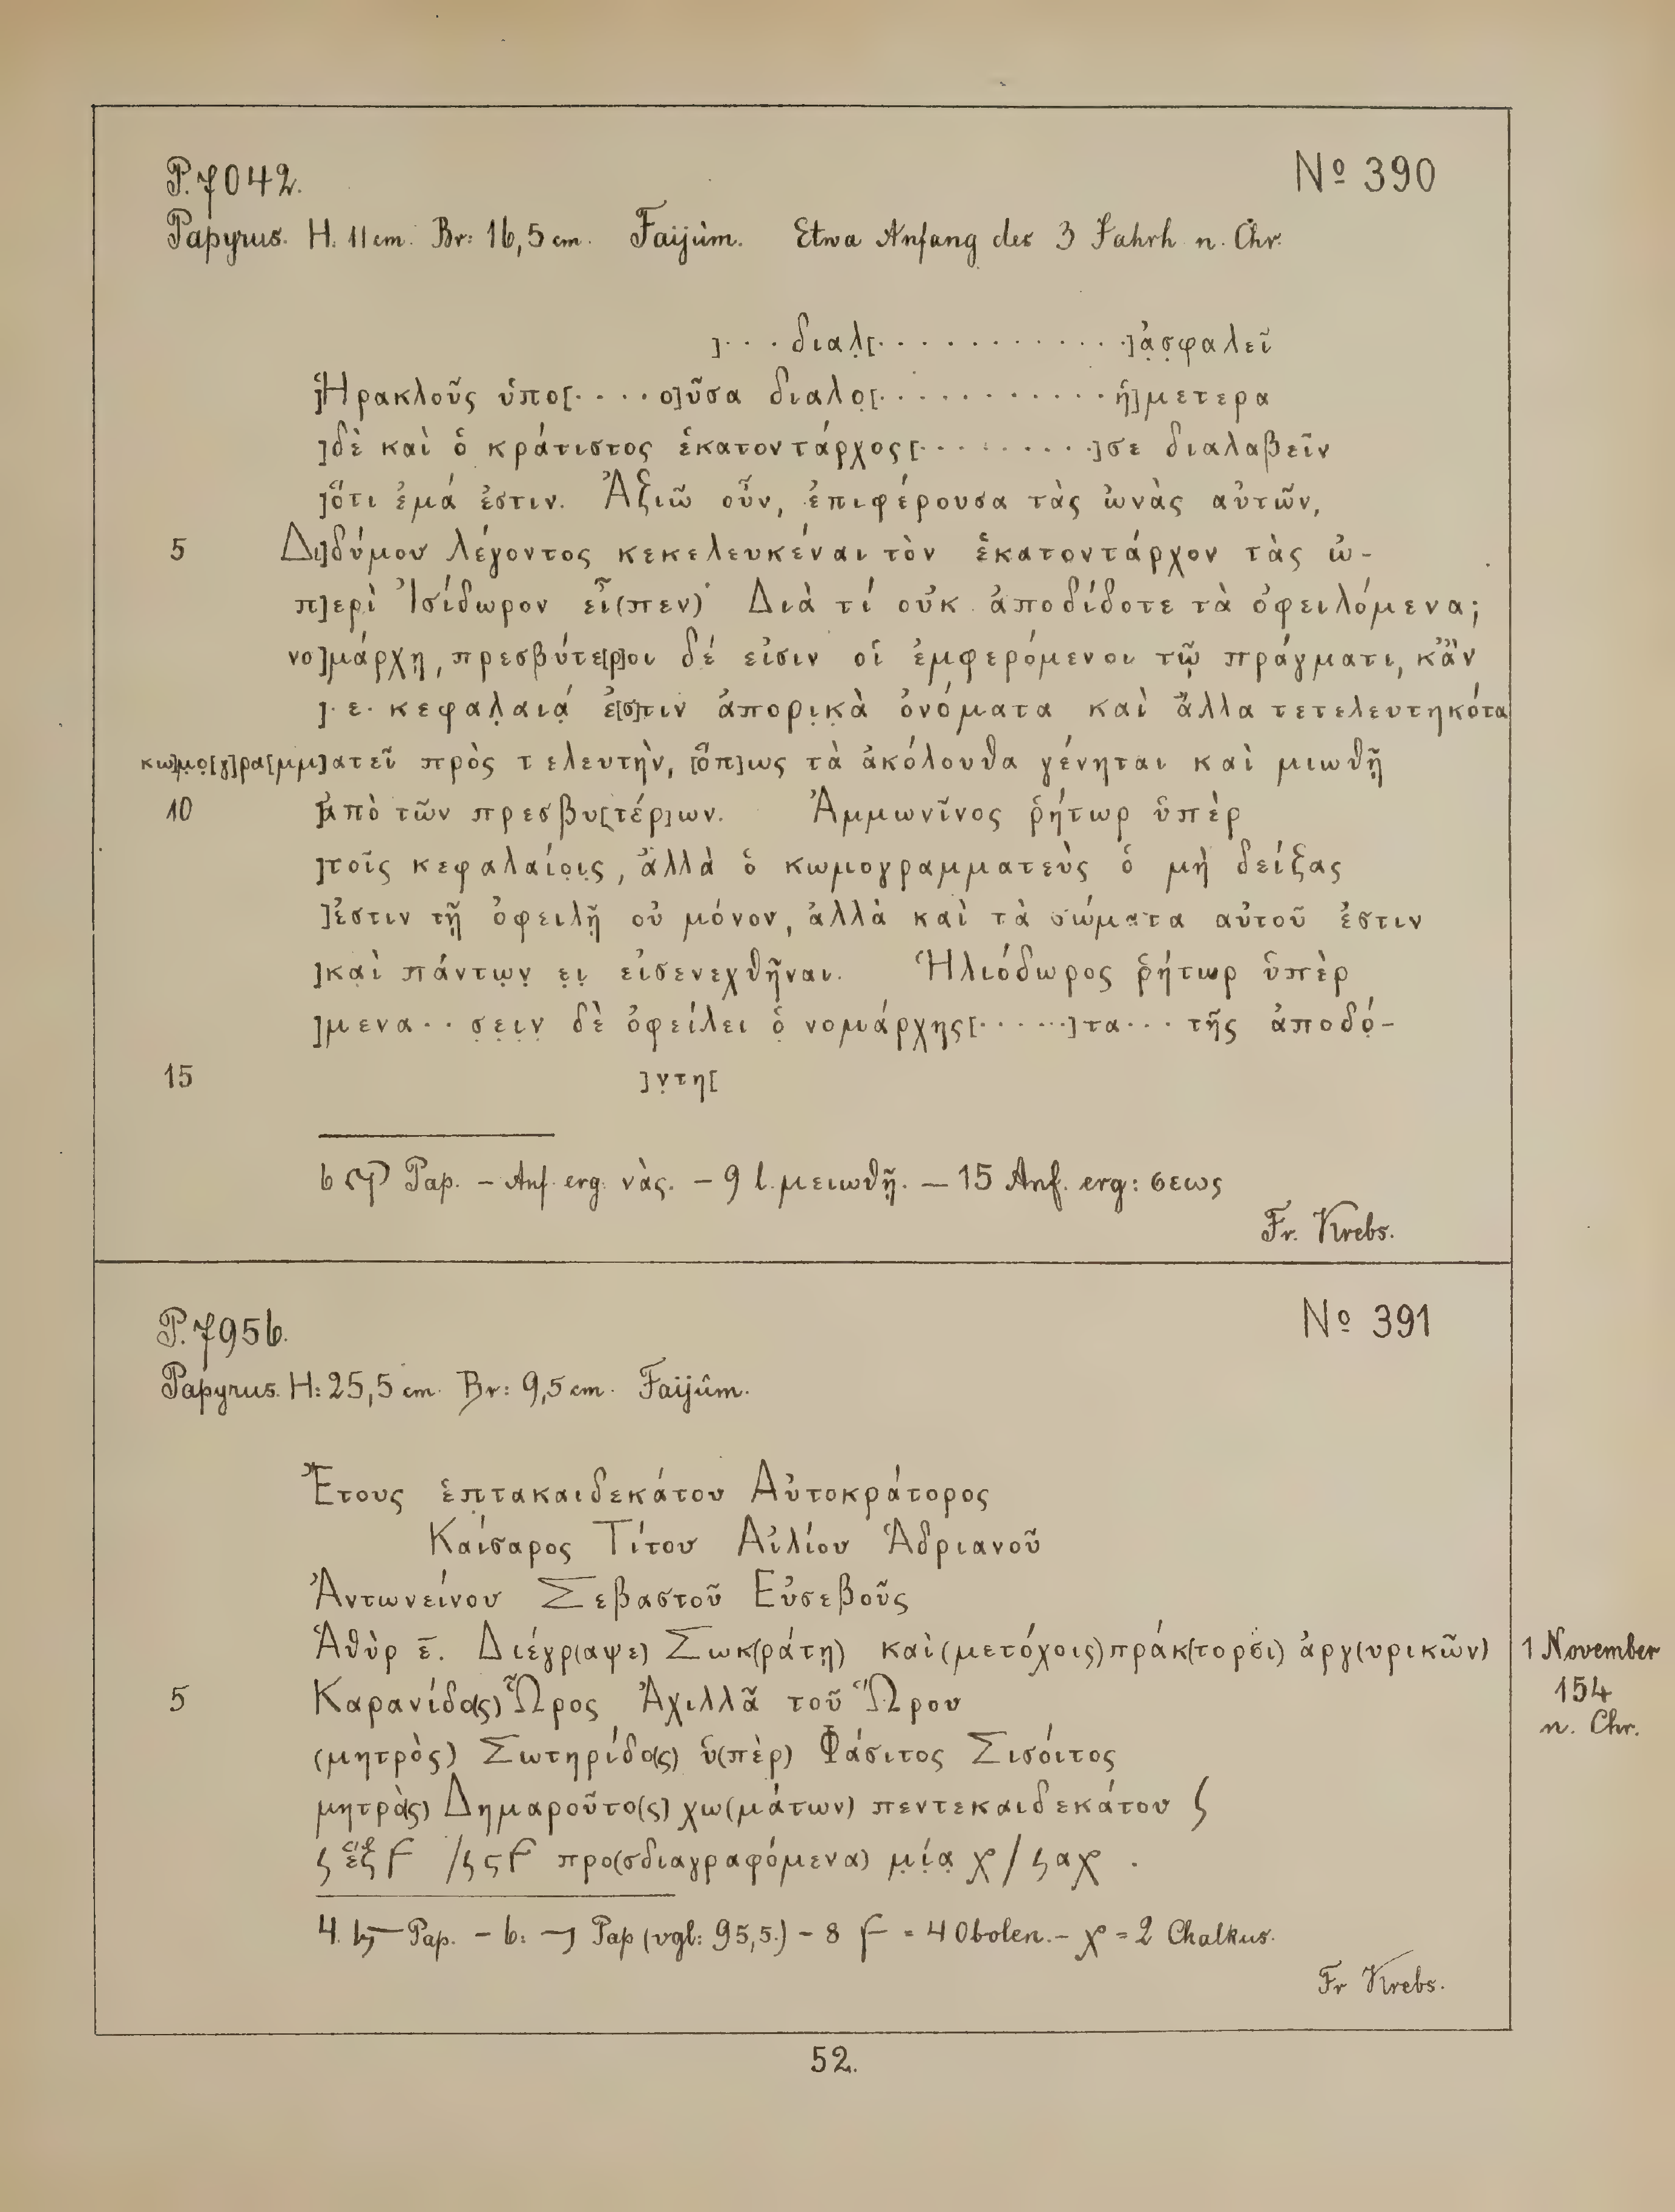 P. 7042. № 390
Papyrus. H. 11 cm. Br: 16,5 cm. Faijûm. Etwa Anfang des 3 Jahrh n. Chr.
]· · · διαλ̣[· · · · · · · · · · · ·]ἀ̣σ̣φαλεῖ
]Ἡρακλοῦς ὑπο[· · · · ο]ὖσα διαλο̣[· · · · · · · · · · · ἡ]μετερα
]δὲ καὶ ὁ κράτιστος ἑκατοντάρχος[· · · · · · · · ·]σε διαλαβεῖν
]ὅτι ἐμά ἐστιν. Ἀξιῶ οὖν, ἐπιφέρουσα τὰς ὠνὰς αὐτῶν,
5 Δι]δύμου λέγοντος κεκελευκέναι τὸν ἑκατοντάρχον τὰς ὠ-
π]ερὶ Ἰσίδωρον εἶ(πεν)· Διὰ τί οὐκ ἀποδίδοτε τὰ ὀφειλόμενα;
νο]μάρχῃ, πρεσβύτε[ρ]οι δέ εἰσιν οἱ ἐμφερόμενοι τῷ πράγματι, κἂν
]· ε · κεφαλ̣αιά̣ ἐ[σ]τιν ἀπορι̣κ̣ὰ ὀνόματα καὶ ἄλλα τετελευτηκότα
κω]μ̣ο̣[γ]ρα[μμ]ατεῖ πρὸς τελευτὴν, [ὅπ]ως τὰ ἀκόλουθα γένηται καὶ μιωθῇ
10 ]ἀπὸ τῶν πρεσβυ[τέρ]ων. Ἀμμωνῖνος ῥήτωρ ὑπὲρ
]τοῖς κεφαλαίο̣ι̣ς, ἀλλὰ ὁ κωμογραμματεὺς ὁ μὴ δείξας
]ἐστιν τῇ ὀφειλῇ οὐ μόνον, ἀλλὰ καὶ τὰ σώματα αὐτοῦ ἐστιν
]κα̣ὶ πάντω̣ν̣ ε̣ι̣ εἰσενεχθῆναι. Ἡλιόδωρος ῥήτωρ ὑπὲρ
]μενα · · σ̣ε̣ι̣ν̣ δὲ ὀφείλει ὁ̣ νομάρχης[· · · · · ·]τα · · · τῆς ἀποδό̣-
15 ]ν̣τη[
6 Pap. – Anf. erg. νὰς. – 9 l. μειωθῇ. – 15 Anf. erg: σεως
Fr. Krebs.
P. 7956. № 391
Papyrus. H: 25,5 cm. Br: 9,5 cm. Faijûm.
Ἔτους ἑπτακαιδεκάτου Αὐτοκράτορος
Καίσαρος Τίτου Αἰλίου Ἁδριανοῦ
Ἀντωνείνου Σεβαστοῦ Εὐσεβοῦς
Ἁθὺρ ε̅. Διέγρ(αψε) Σωκ(ράτῃ) καὶ (μετόχοις) πράκ(τορσι) ἀργ(υρικῶν) 1 November
154
n. Chr.
5 Καρανίδο(ς) Ὧρος Ἀχιλλᾶ τοῦ Ὥρου
(μητρὸς) Σωτηρίδο(ς) ὑ(πὲρ) Φάσιτος Σισόιτος
μητρὸ(ς) Δημαροῦτο(ς) χω(μάτων) πεντεκαιδεκάτου ϛ
ϛ ἕξ Ϝ /ϛ ϛ Ϝ προ(σδιαγραφόμενα) μ̣ί̣α̣ χ / ϛ α χ .
4. Pap. – 6: Pap (vgl: 95,5.) – 8 Ϝ = 4 Obolen. – χ = 2 Chalkus.
Fr Krebs.
52.